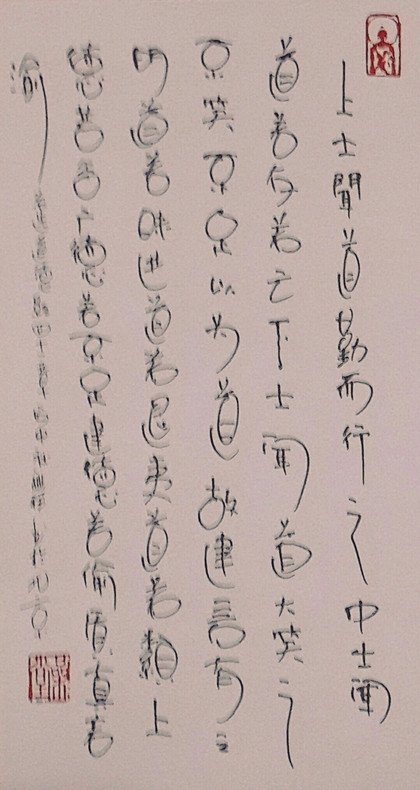 上士聞道勤而行之中士聞
道若存若亡下士聞道大笑之
不笑不足以为道故建言有之
明道若昧进道若退夷道若纇上
德若谷广德若不足建德若偷质真若
渝